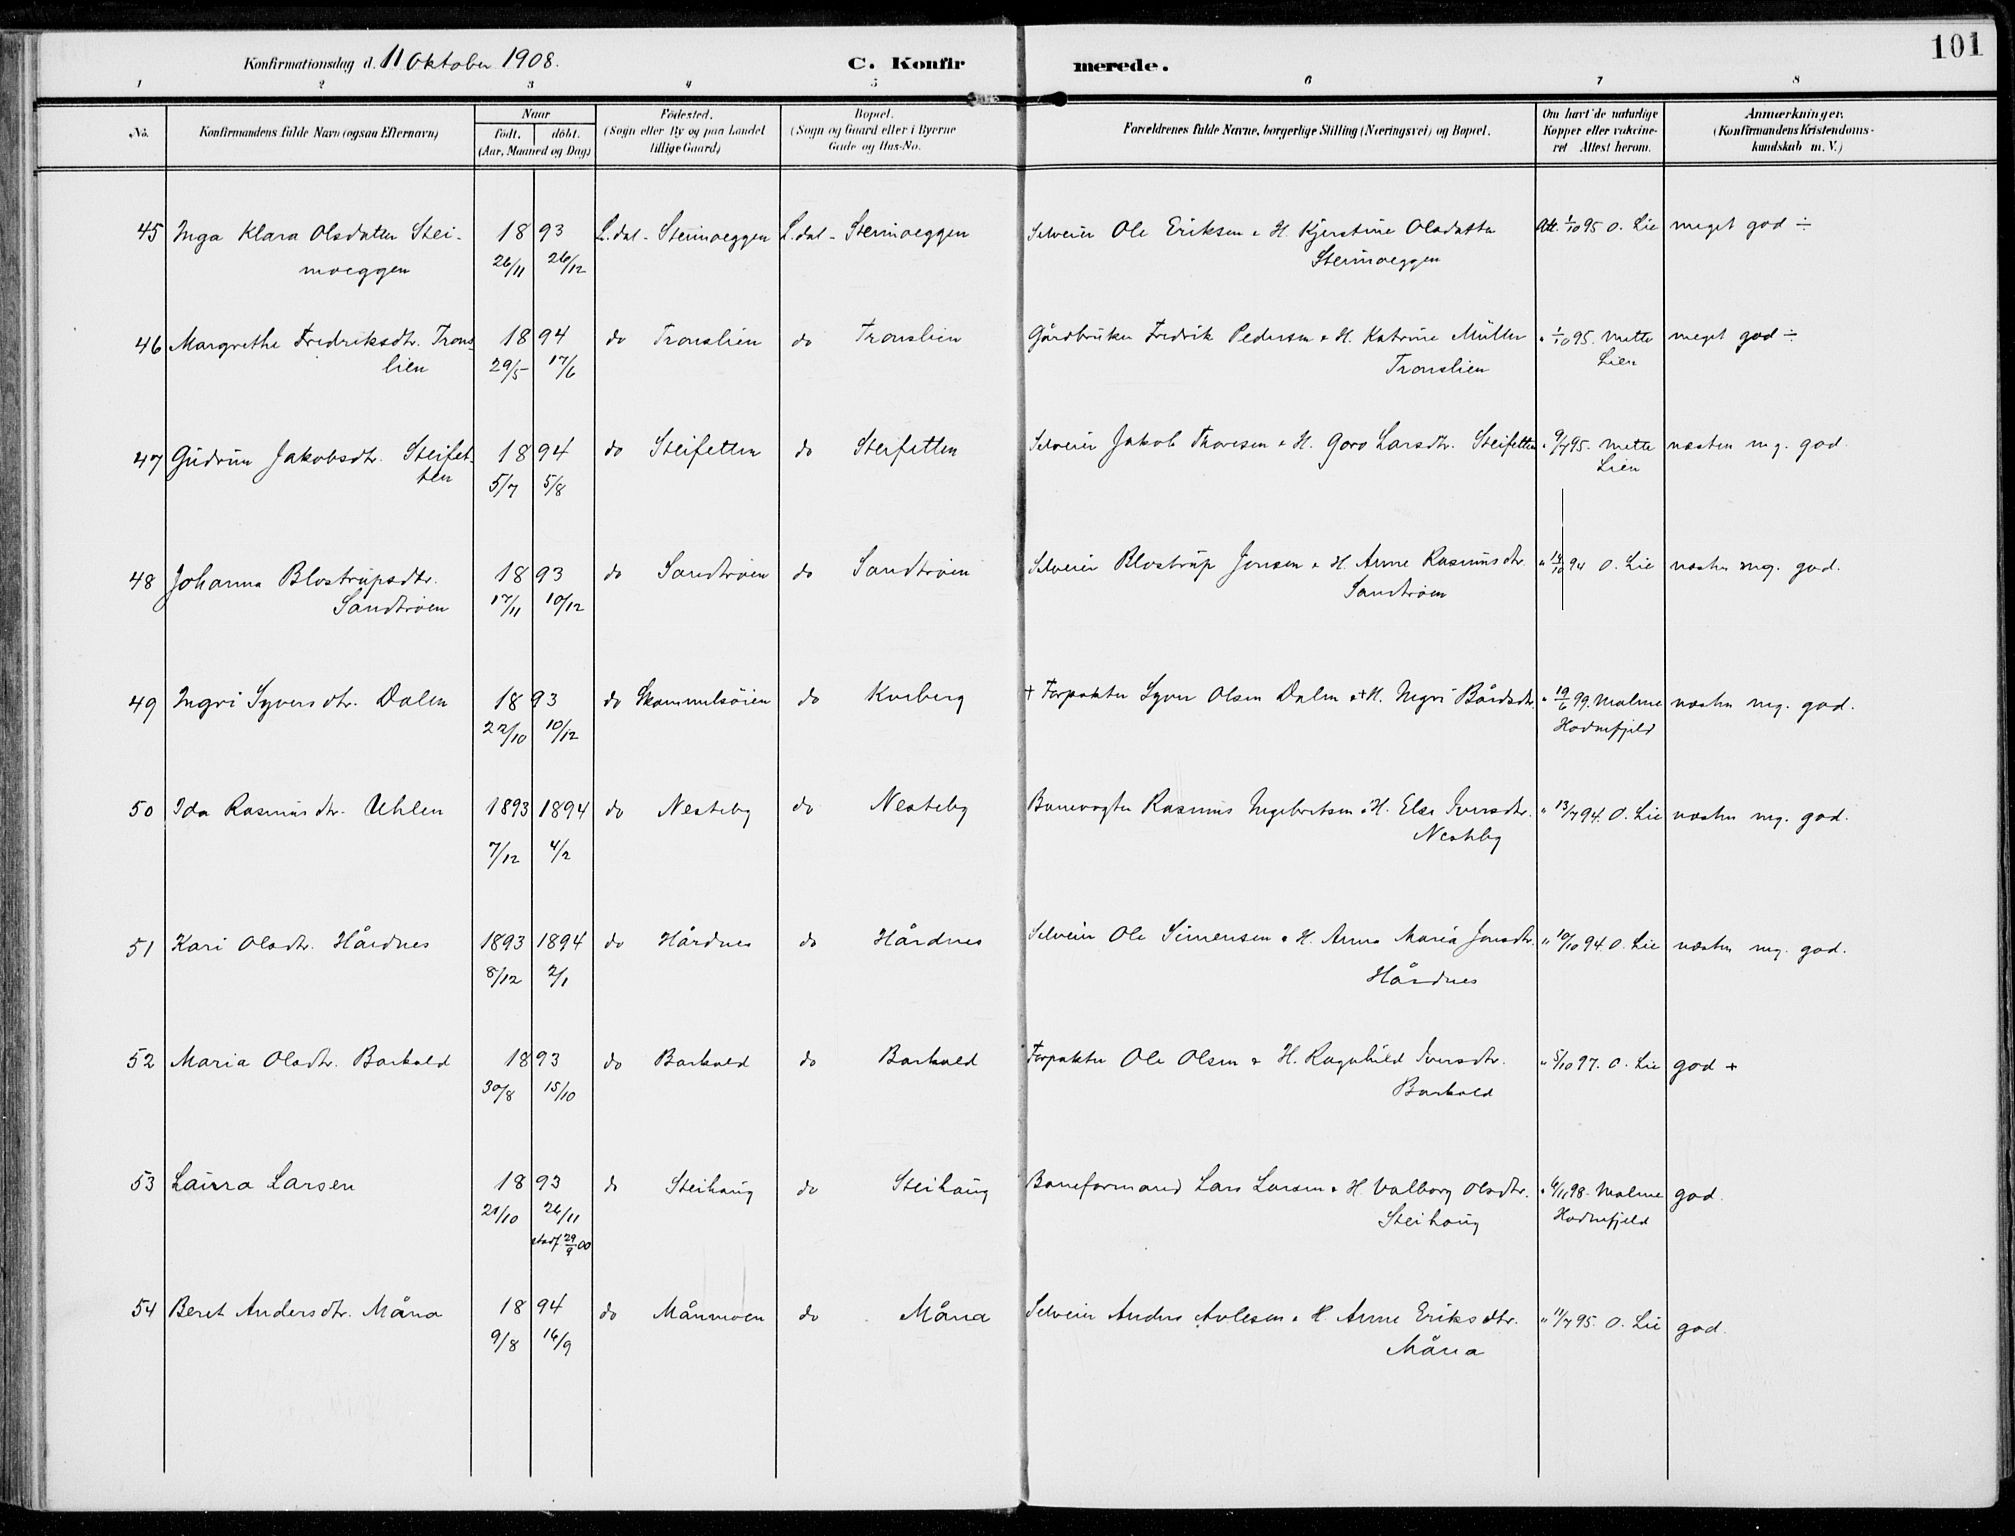 101
Konfirmationsdag d. 11 Oktober 1908. C. Konfirmerede.
1 2 3 4 5 6 7 8
No. Konfirmandens fulde Navn (ogsaa Efternavn) Naar født. døbt. (Aar, Maaned og Dag) Fødested. (Sogn eller By og paa Landet tillige Gaard) Bopæl. (Sogn og Gaard eller i Byerne Gade og Hus-No. Forældrenes fulde Navne, borgerlige Stilling (Næringsvei) og Bopæl. Om havt de naturlige Kopper eller vakcineret Attest herom. Anmærkninger. (Konfirmandens Kristendomskundskab m. V.)
45 Inga Klara Olsdatter Stei- 18 93 L.dal - Steimoeggen L.dal - Steimoeggen Selveier Ole Eriksen & H. Kjerstine Olsdatter Att. 1/10 95 O. Lie meget god ÷
moeggen 26/11 26/12 Steimoeggen
46 Margrethe Fredriksdtr. Trons- 18 94 do Tronslien do Tronslien Gårdbruker Fredrik Pedersen & H. Katrine Müller " 1/10 95. Mette meget god ÷
lien 29/5 17/6 Tronslien Lien
47 Gudrun Jakobsdtr. Steifet- 18 94 do Steifetten do Steifetten Selveier Jakob Thoresen & H. Goro Larsdtr. Steifetten " 9/7 95. Mette næsten mg. god.
ten 5/7 5/8 Lien
48 Johanna Blostrupsdtr. 18 93 do Sandtrøen do Sandtrøen Selveier Blostrup Jonsen & H. Anne Rasmusdtr. " 14/10 94 O. Lie næsten mg. god.
Sandtrøen 17/11 10/12 Sandtrøen
49 Ingri Syversdtr. Dalen 18 93 do Skammelsøien do Kveberg + Forpakter Syver Olsen Dalen & + H. Ingri Bårdsdtr. " 19/6 99. Malene næsten mg. god.
22/10 10/12 Hodnefjeld
50 Ida Rasmusdtr. Uhlen 1893 1894 do Nesteby do Nesteby Banevogter Rasmus Ingebretsen & H. Else Iversdtr. " 13/7 94. O. Lie næsten mg. god.
7/12 4/2 Nesteby
51 Kari Olsdtr. Hårdnes 1893 1894 do Hårdnes do Hårdnes Selveier Ole Simensen & H. Anne Maria Jonsdtr. " 10/10 94 O. Lie næsten mg. god.
8/12 2/1 Hårdnes
52 Maria Olsdtr. Barkald 18 93 do Barkald do Barkald Forpakter Ole Olsen & H. Ragnhild Iversdtr. " 5/10 97. O. Lie god +
30/8 15/10 Barkald
53 Laura Larsen 18 93 do Steihaug do Steihaug Baneformand Lars Larsen & H. Valborg Olsdtr. " 6/11 98. Malene god.
21/10 26/11 Steihaug Hodnefjeld
stadf. 29/9 00
54 Beret Andersdtr. Måna 18 94 do Månmoen do Måna Selveier Anders Avlesen & H. Anne Eriksdtr. " 11/7 95. O. Lie god.
9/8 16/9 Måna